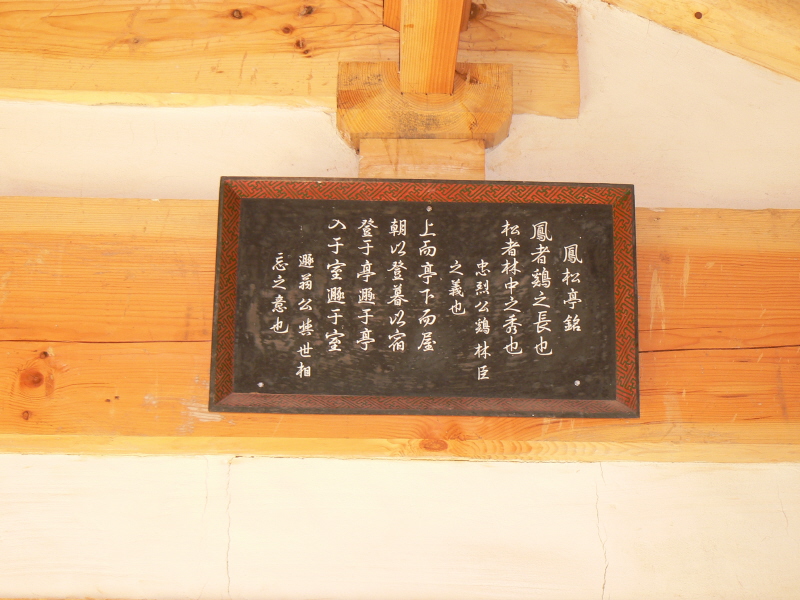 鳳松亭銘
鳳者鷄之長也
松者林中之秀也
忠烈公鷄林臣
之義也
上而亭下而屋
朝以登暮以宿
登于亭遯于亭
入于室遯于室
遯翁公與世相
忘之意也